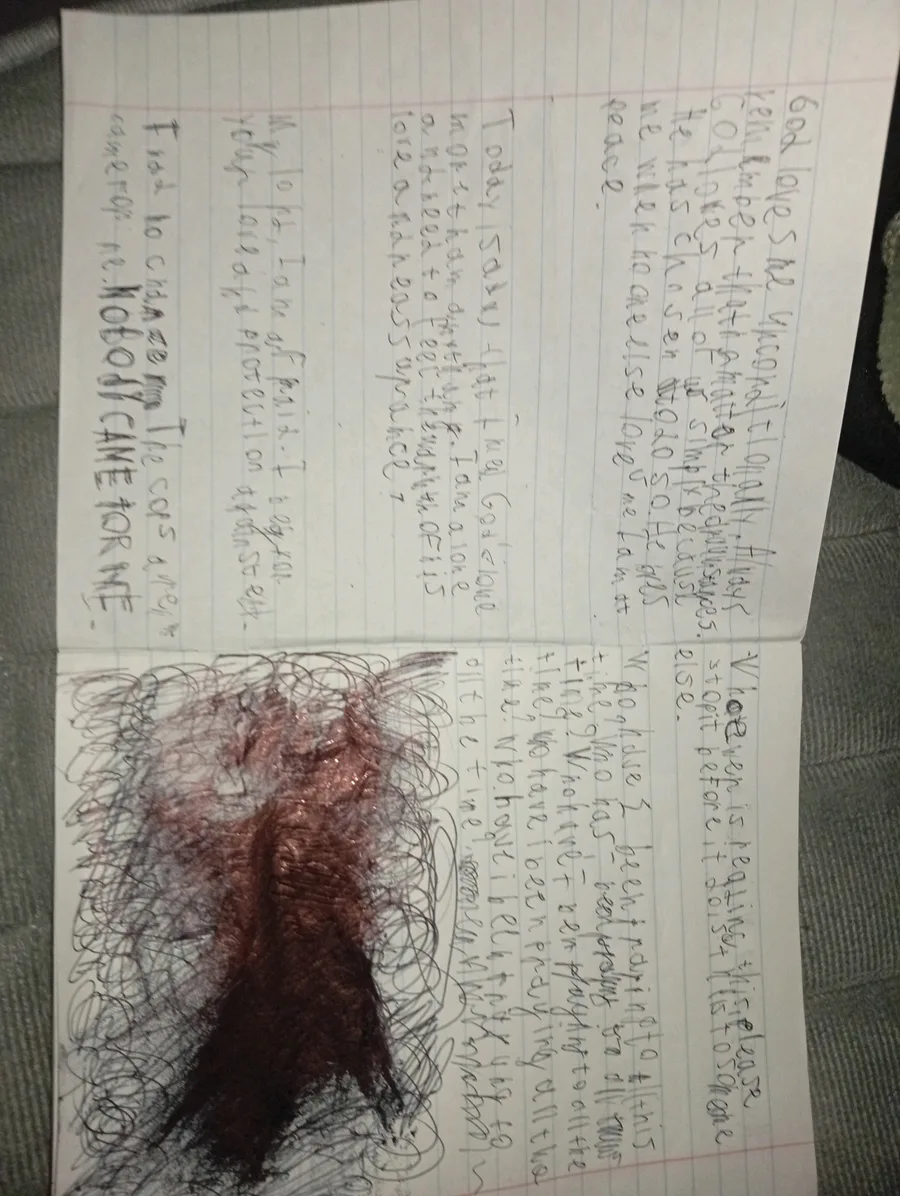 God loves me unconditionally. Always
remember that
God loves all of us simply because
He has chosen to do so. He loves
me when no one else loves me I am at
peace.
Today is a day that I need God's love
more than anything. I am alone
and need to feel the warmth of His
love and reassurance.
My lord, I am afraid. I beg for
your love and protection against
I had no chance. The cops
came for me. NOBODY CAME FOR ME.
Whoever is reading this please
stop it before it does this to someone
else.
Who have I been praying to all this
time? Who has I been praying to all this
time? Who have I been praying to all the
time, who have i been praying all the
time. Who have i been praying to
all the time.